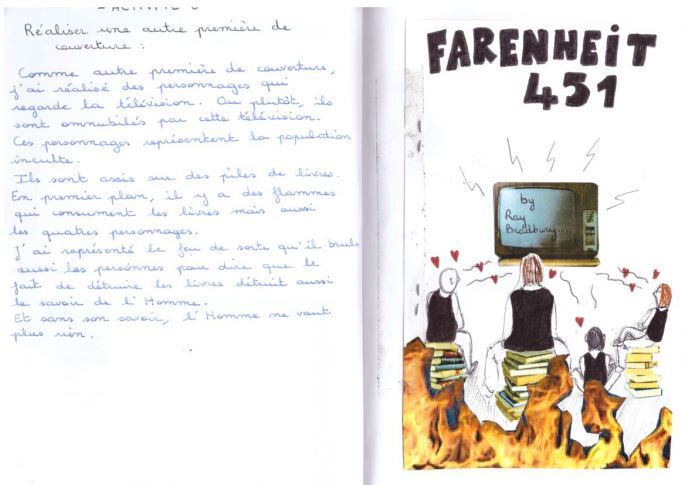 - ACTIVITÉ
Réaliser une autre première de
couverture :
Comme autre première de couverture,
j'ai réalisé des personnages qui
regarde la télévision. Ou plutôt, ils
sont omnubilés par cette télévision.
Ces personnages représentent la population
inculte.
Ils sont assis sur des piles de livres.
En premier plan, il y a des flammes
qui consument les livres mais aussi
les quatres personnages.
J'ai représenté le feu de sorte qu'il brule
aussi les persónnes pour dire que le
fait de détruire les livres détruit aussi
le savoir de l'Homme.
Et sans son savoir, l'Homme ne vaut
plus rien.
FARENHEIT
451
by
Ray
Bradbury...